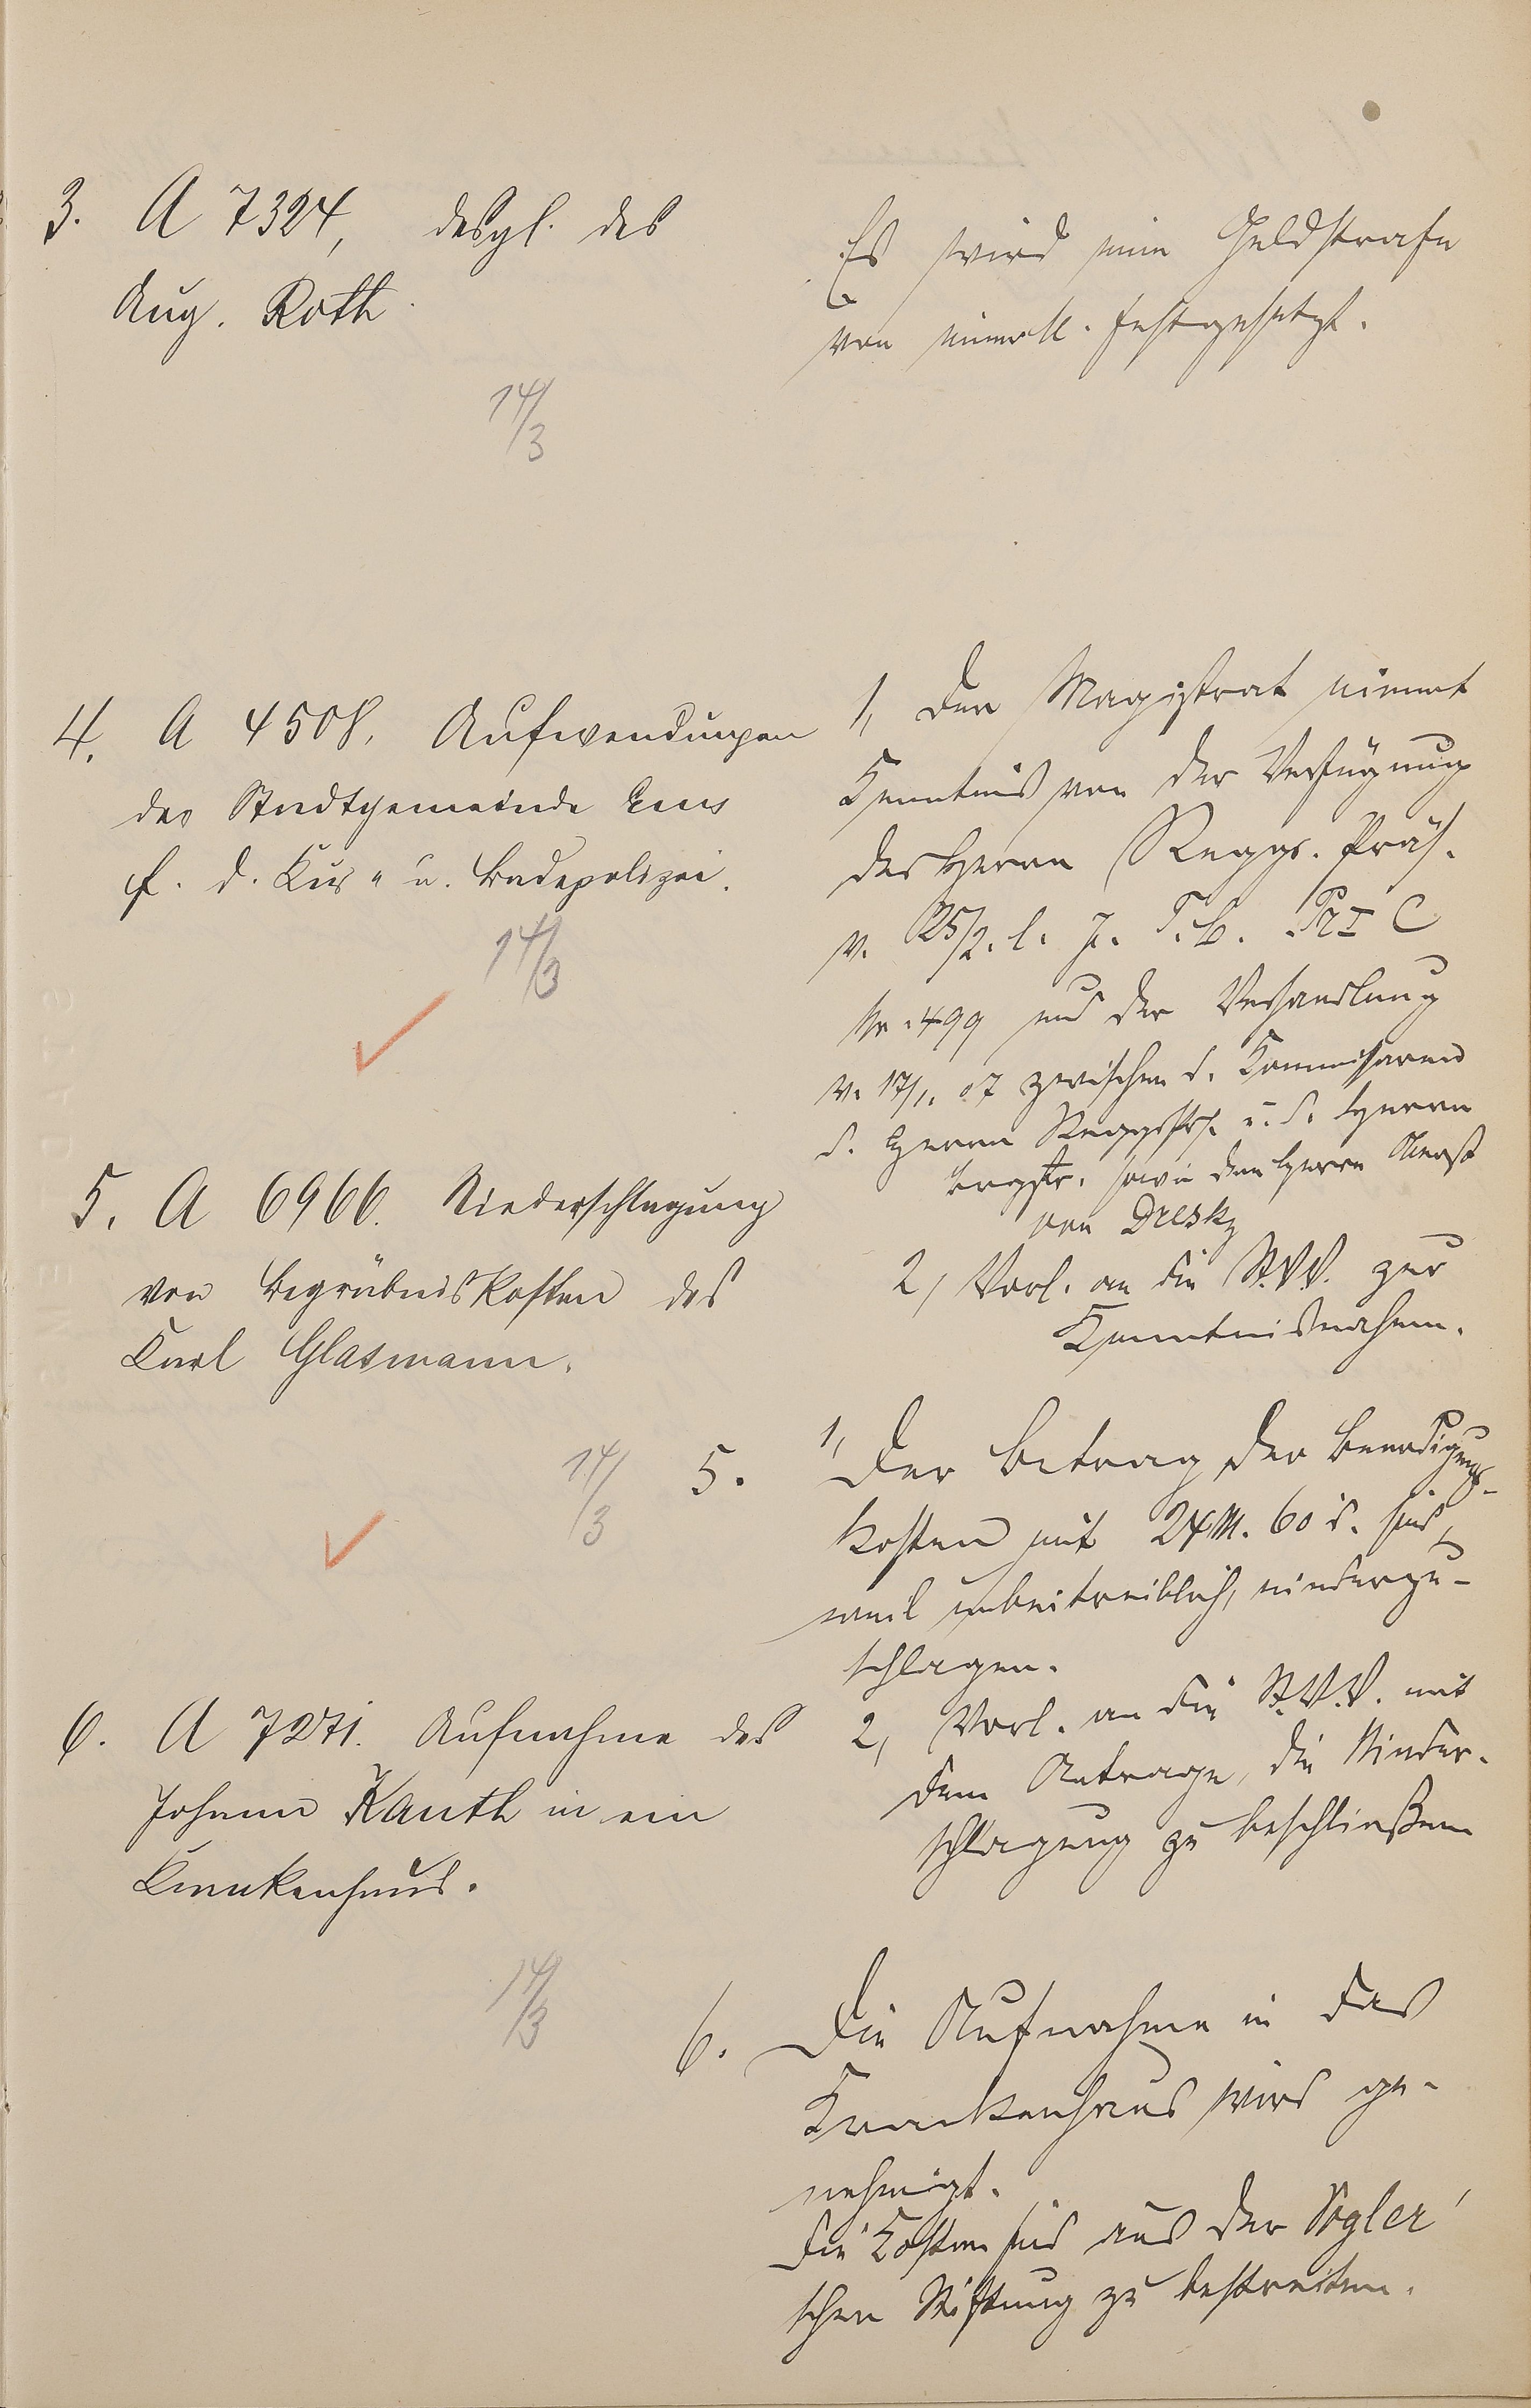 3. A 7324, desgl. des
Aug. Roth
14/3
Es wird eine Geldstrafe
von einer M. festgesetzt.
4. A 4508. Aufwendungen
der Stadtgemeinde Ems
f. d. Kur- u. Badepolizei.
14/3
1, Der Magistrat nimmt
Kenntnis von der Verfügung
des Herrn Reggs. Präs.
v. 25/2. l. J. T. B. Pr I C
Nr. 499 und der Verhandlung
v. 17/1. 07 zwischen d. Kommissaren
d. Herrn Reggsprs. u. d. Herrn
Brgstr. sowie dem Herrn Oberst
von Dresky
2, Vorl. an die St.V.V. zur
Kenntnisnahme.
5. A 6966. Niederschlagung
von Begräbniskosten des
Karl Glasmann.
14/3
5. 1, Der Betrag der Beerdigungs-
kosten mit 24 M. 60 d. sind,
weil unbeitreiblich, niederzu-
schlagen.
2, Vorl. an die St.V.V. mit
dem Antrage, die Nieder-
schlagung zu beschließen
6. A 7271. Aufnahme des
Johann Kauth in ein
Krankenhaus.
14/3
6. Die Aufnahme in das
Krankenhaus wird ge-
nehmigt.
Die Kosten sind aus der
schen Stiftung zu bestreiten.